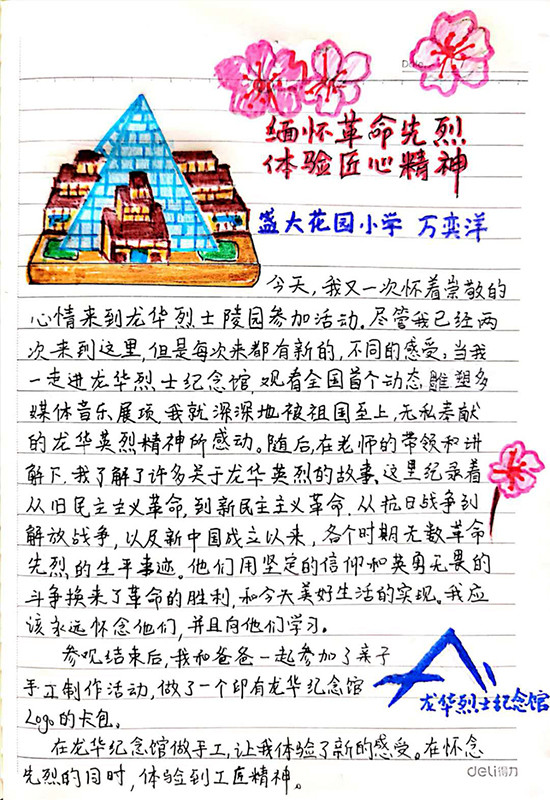 Date
缅怀革命先烈
体验匠心精神
盛大花园小学 万奕洋
今天,我又一次怀着崇敬的
心情来到龙华烈士陵园参加活动。尽管我已经两
次来到这里,但是每次来都有新的,不同的感受:当我
一走进龙华烈士纪念馆,观看全国首个动态雕塑多
媒体音乐展项,我就深深地被祖国至上,无私奉献
的龙华英烈精神所感动。随后,在老师的带领和讲
解下,我了解了许多关于龙华英烈的故事。这里纪录着
从旧民主主义革命,到新民主主义革命,从抗日战争到
解放战争,以及新中国成立以来,各个时期无数革命
先烈的生平事迹。他们用坚定的信仰和英勇无畏的
斗争换来了革命的胜利,和今天美好生活的实现。我应
该永远怀念他们,并且向他们学习。
参观结束后,我和爸爸一起参加了亲子
手工制作活动,做了一个印有龙华纪念馆
Logo的卡包。
龙华烈士纪念馆
在龙华纪念馆做手工,让我体验了新的感受。在怀念
先烈的同时,体验到工匠精神。
deli得力